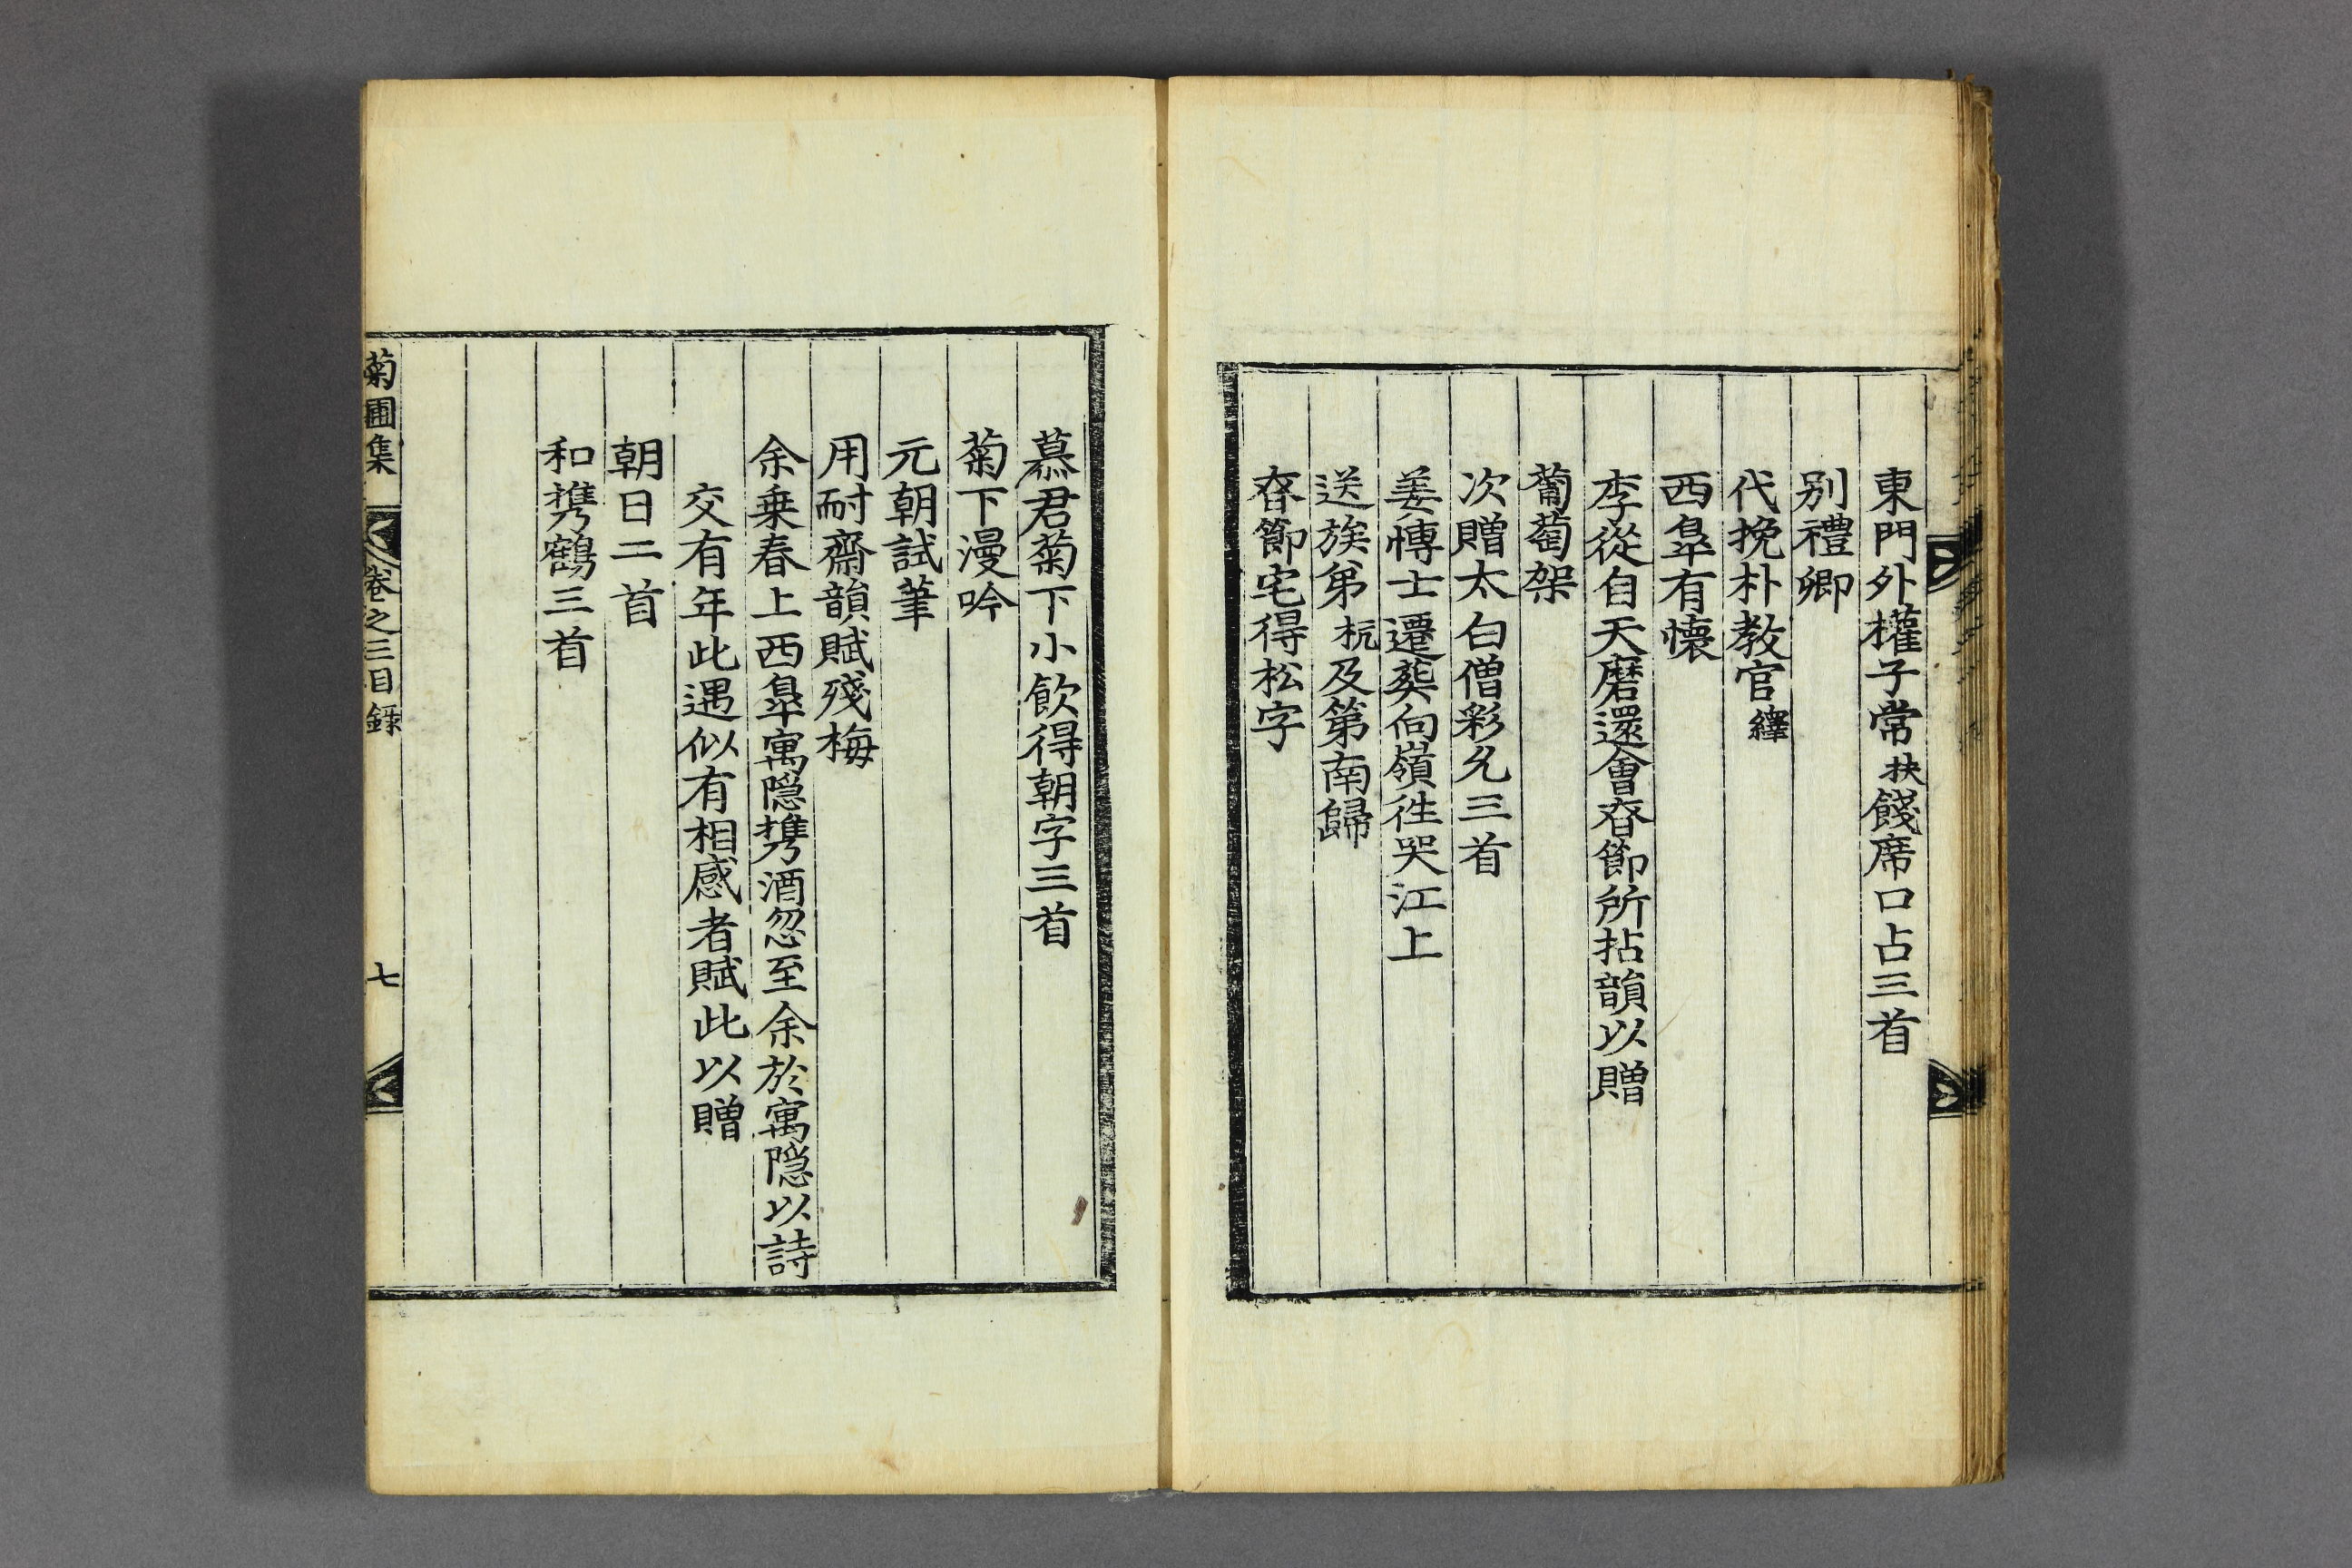 東門外權子常扶餞席口占三首
别禮卿
代挽朴教官繹
西臯有懷
李從自天磨還會㫪節所拈韻以贈
葡萄架
次贈太白僧彩允三首
姜博士遷葬向嶺徃哭江上
送族弟杬及第南歸
㫪節宅得松字
慕君菊下小飲得朝字三首
菊下漫吟
元朝試筆
用耐齋韻賦殘梅
余乗春上西臯寓隠携酒忽至余於寓隠以詩
交有年此遇似有相感者賦此以贈
朝日二首
和携鶴三首
菊圃集 卷之三目錄 七